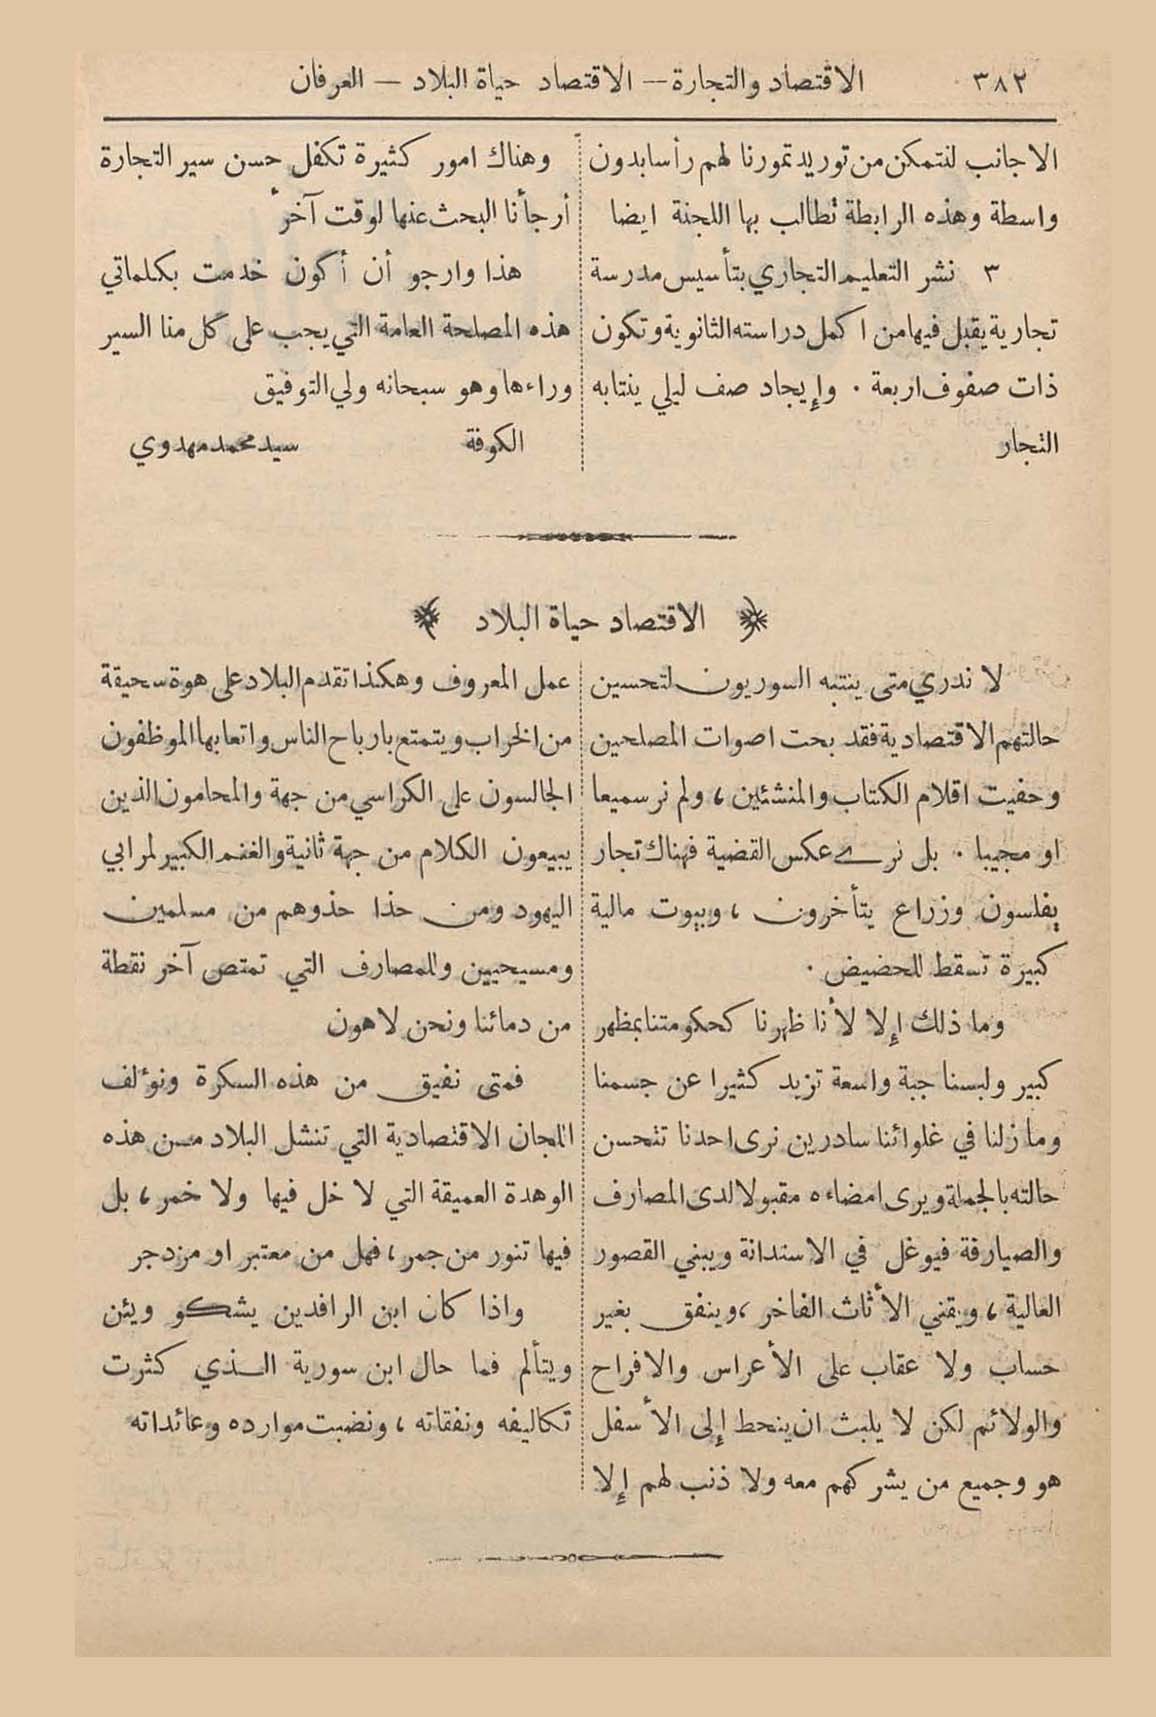 ٣٨٢ الاقتصاد والتجارة — الاقتصاد حياة البلاد — العرفان
الاجانب لنتمكن من توريد تمورنا لهم رأسا بدون
واسطة وهذه الرابطة تطالب بها اللجنة ايضا
٣ نشر التعليم التجاري بتأسيس مدرسة
تجارية يقبل فيها من اكمل دراسته الثانوية وتكون
ذات صفوف اربعة . وإيجاد صف ليلي ينتابه
التجار
وهناك امور كثيرة تكفل حسن سير التجارة
أرجأنا البحث عنها لوقت آخر
هذا وارجو أن أكون خدمت بكلماتي
هذه المصلحة العامة التي يجب على كل منا السير
وراءها وهو سبحانه ولي التوفيق
الكوفة سيد محمد مهدوي
الاقتصاد حياة البلاد
لا ندري متى ينتبه السوريون لتحسين
حالتهم الاقتصادية فقد بحت اصوات المصلحين
وحفيت اقلام الكتاب والمنشئين ، ولم نر سميعا
او مجيبا . بل نرى عكس القضية فهناك تجار
يفلسون وزراع يتأخرون ، وبيوت مالية
كبيرة تسقط للحضيض .
وما ذلك إلا لأنا ظهرنا كحكومتنا بمظهر
كبير ولبسنا جبة واسعة تزيد كثيرا عن جسمنا
وما زلنا في غلوائنا سادرين نرى احدنا تتحسن
حالته بالجملة ويرى امضاءه مقبولا لدى المصارف
والصيارفة فيوغل في الاستدانة ويبني القصور
العالية ، ويقني الأثاث الفاخر ، وينفق بغير
حساب ولا عقاب على الأعراس والافراح
والولائم لكن لا يلبث ان ينحط إلى الأسفل
هو وجميع من يشركهم معه ولا ذنب لهم إلا
عمل المعروف وهكذا تقدم البلاد على هوة سحيقة
من الخراب ويتمتع بارباح الناس واتعابها الموظفون
الجالسون على الكراسي من جهة والمحامون الذين
يبيعون الكلام من جهة ثانية والغنم الكبير لمرابي
اليهود ومن حذا حذوهم من مسلمين
ومسيحيين وللمصارف التي تمتص آخر نقطة
من دمائنا ونحن لاهون
فمتى نفيق من هذه السكرة ونؤلف
اللجان الاقتصادية التي تنشل البلاد من هذه
الوهدة العميقة التي لا خل فيها ولا خمر ، بل
فيها تنور من جمر ، فهل من معتبر او مزدجر
واذا كان ابن الرافدين يشكو ويئن
ويتألم فما حال ابن سورية الذي كثرت
تكاليفه ونفقاته ، ونضبت موارده وعائداته